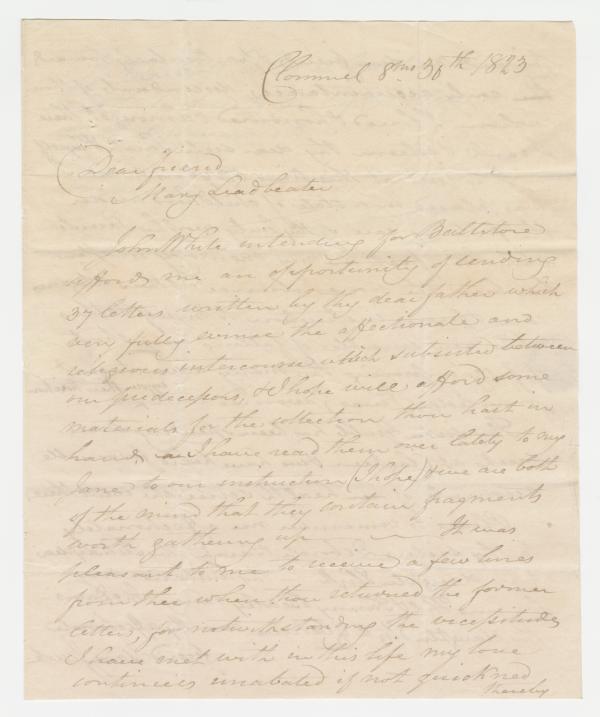 Clonmel 8mo 30th 1823
Dear friend
Mary Leadbeater
John White intending for Ballitore
affords me an opportunity of sending
37 letters written by thy dear father which
very fully evince the affectionate and
religious intercourse which subsisted between
our predecessors, & I hope will afford some
materials for the collection thou hast in
hand. I have read them over lately to my
Jane to our instruction (I hope) & we are both
of the mind that they contain fragments
worth gathering up — It was
pleasant to me to receive a few lines
from thee when thou returned the former
letters, for notwithstanding the vicepitudes
I have met with in this life my love
continues unabated if not quickned
thereby